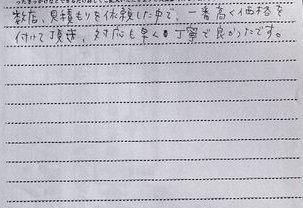 数店、見積もりを依頼した中で、一番高く価格を
付けて頂き、対応も早く丁寧で良かったです。